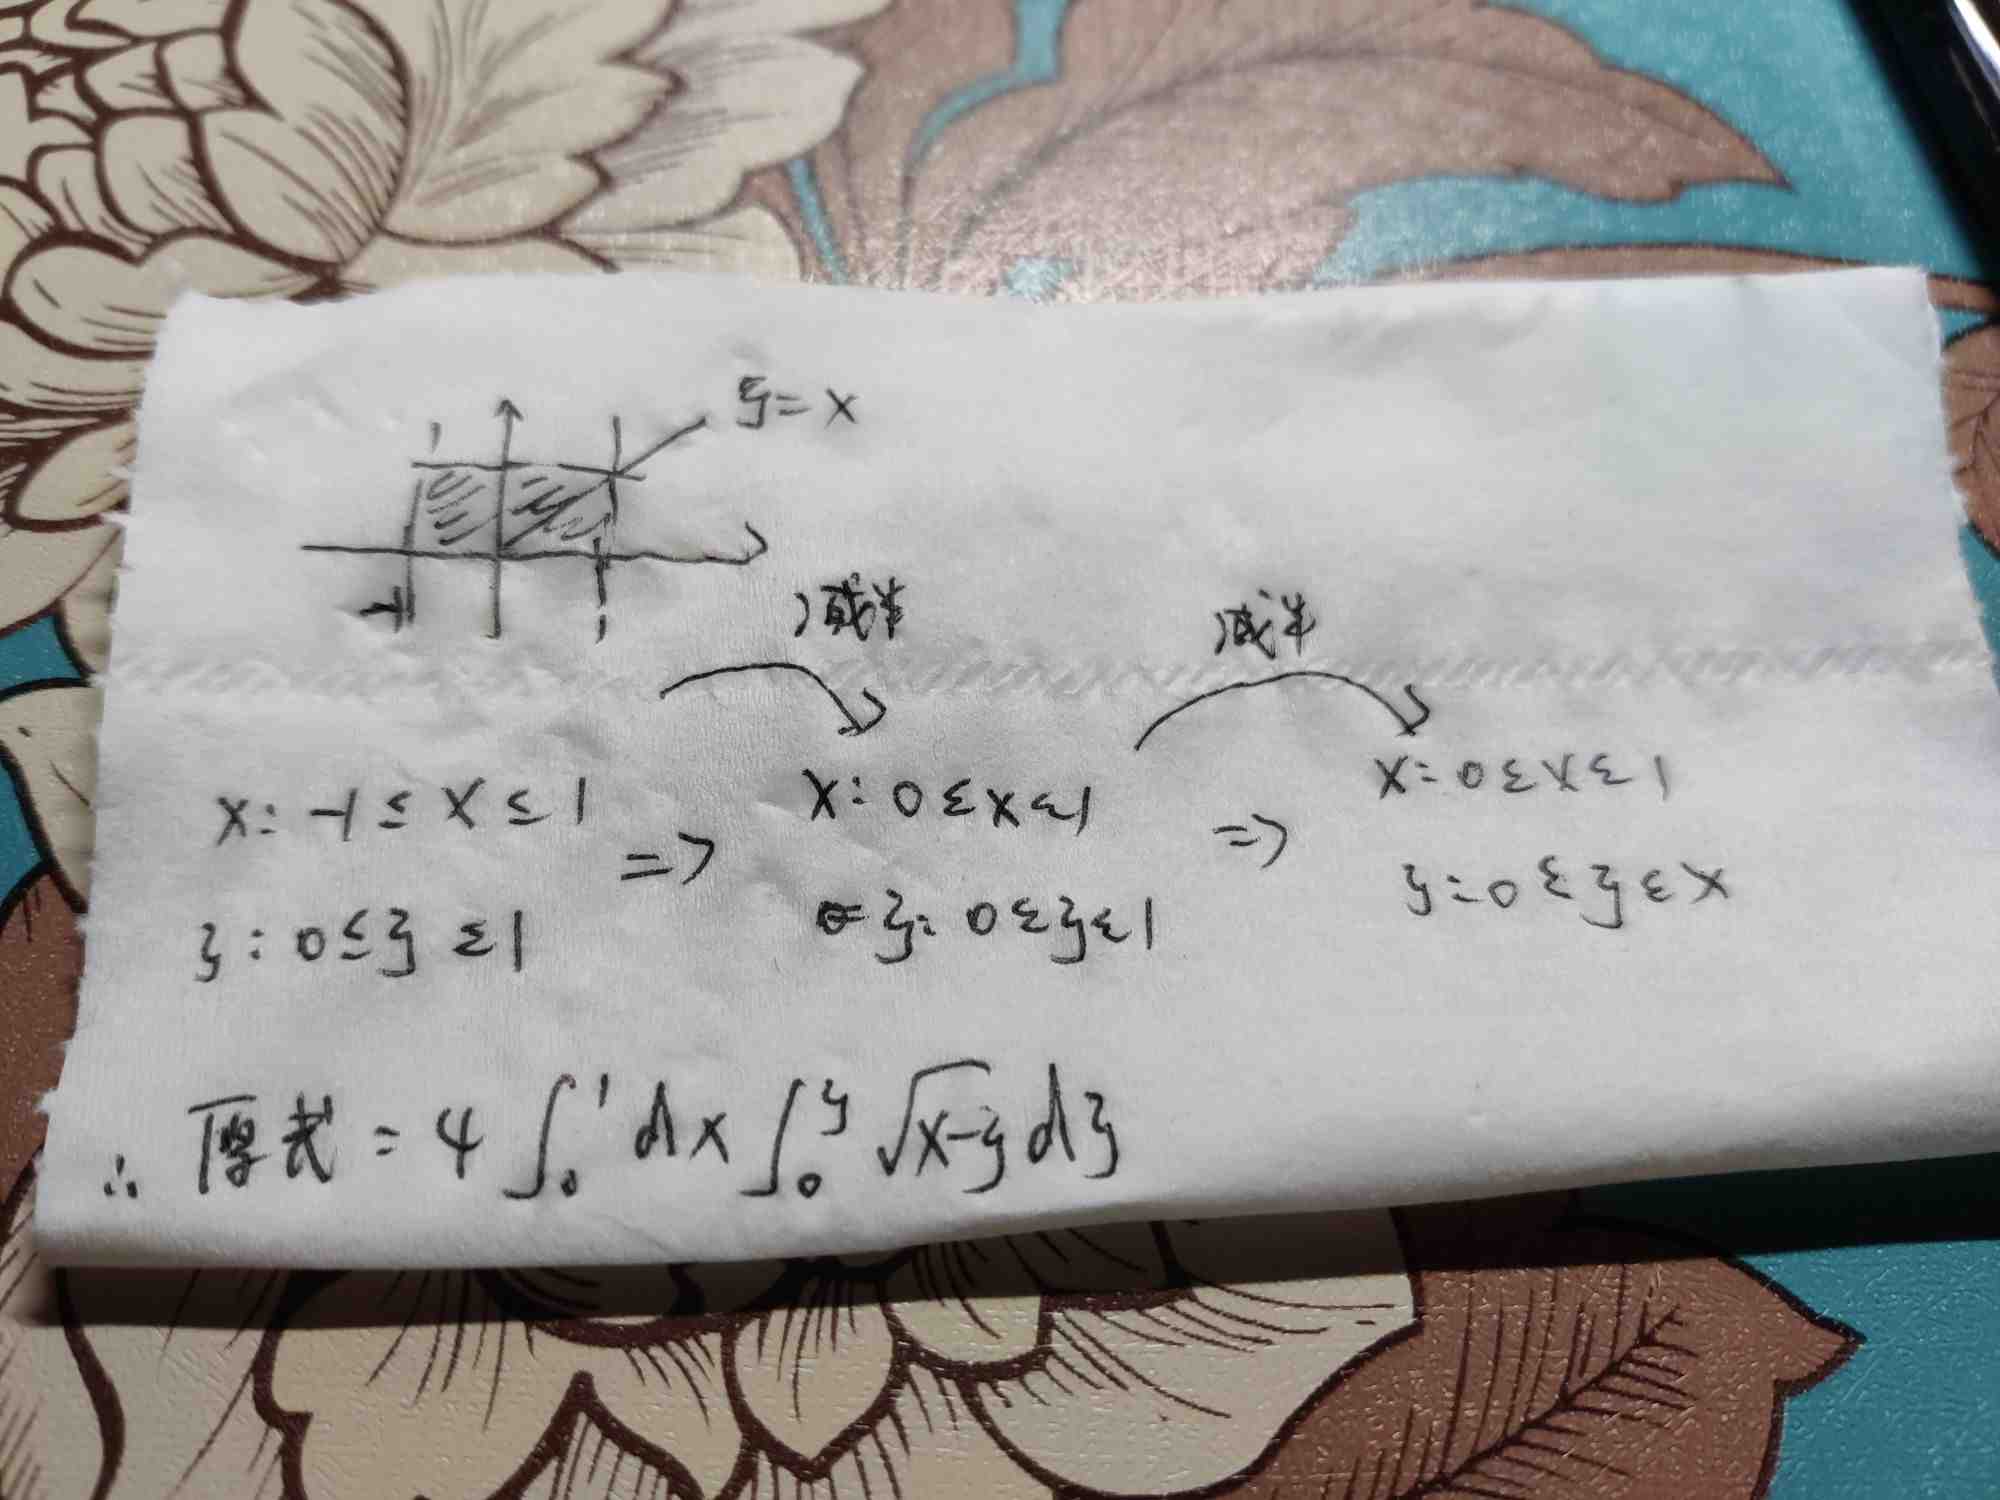 y=x
1
-1 1
减半 减半
x: -1≤x≤1 => x: 0≤x≤1 => x: 0≤x≤1
y: 0≤y≤1 y: 0≤y≤1 y: 0≤y≤x
∴ 原式 = 4∫₀¹dx∫₀ʸ√x-y dy